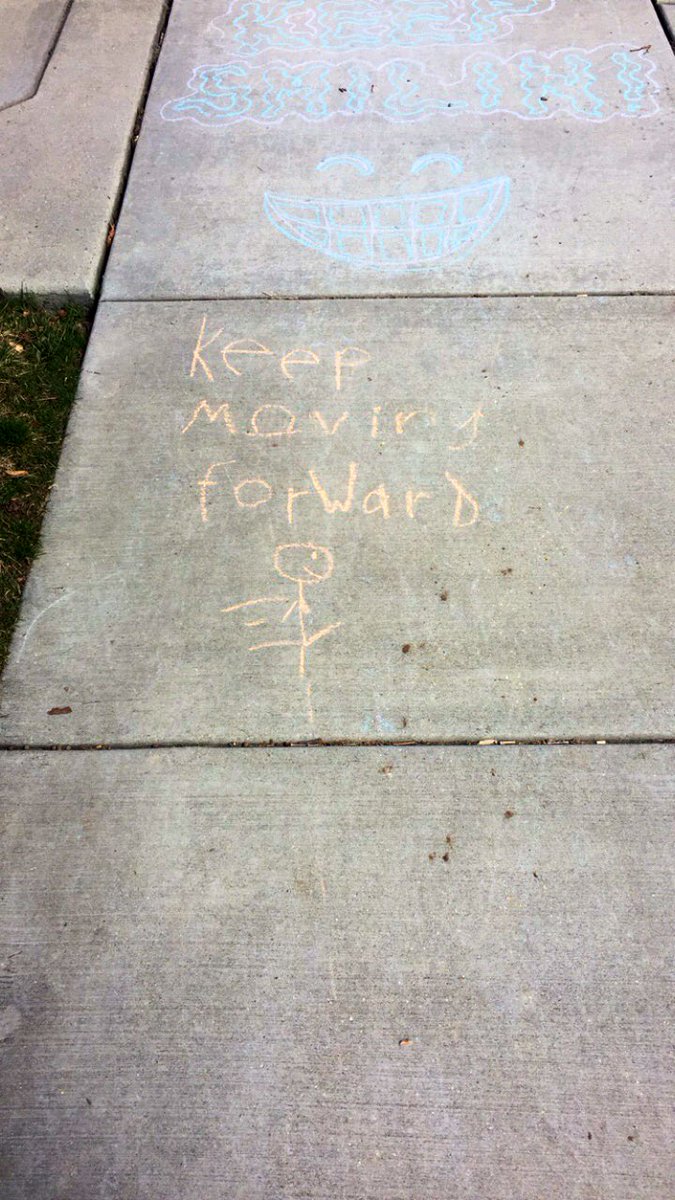 KEEP
SMILIN!
Keep
moving
forward